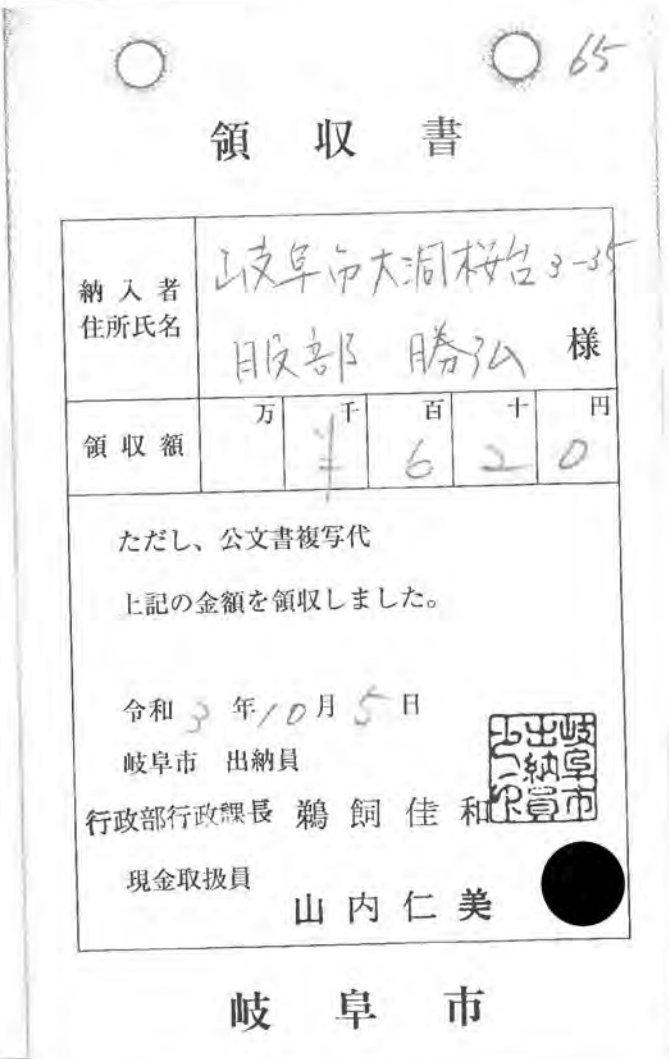 65
領収書
納入者
住所氏名
岐阜市大洞桜台3-35
服部 勝弘 様
領収額
万 千 百 十 円
¥ 6 2 0
ただし、公文書複写代
上記の金額を領収しました。
令和 3 年 10 月 5 日
岐阜市 出納員
行政部行政課長 鵜飼佳和
岐阜市
出納員
之印
現金取扱員
山内仁美
岐阜市